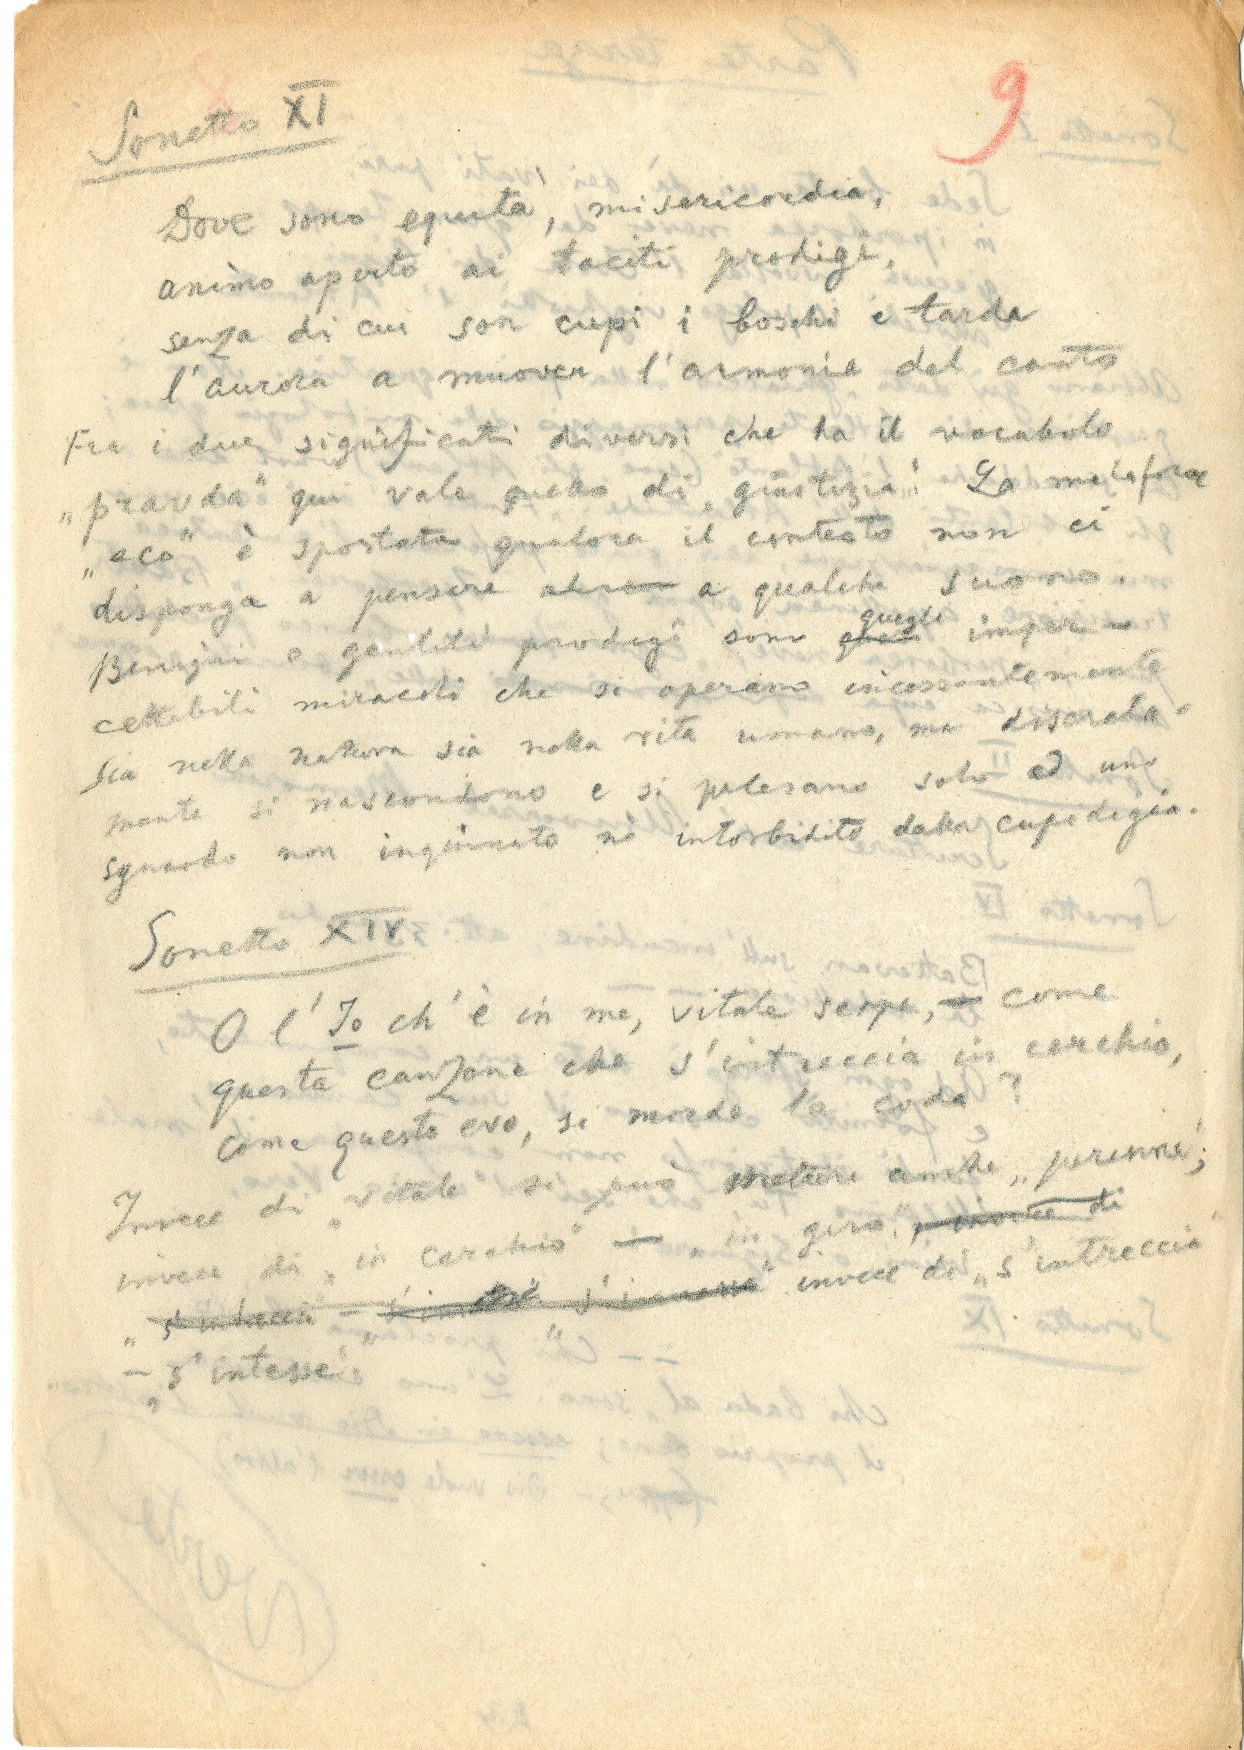 9
Sonetto XI
Dove sono equità, misericordia,
animo aperto ai taciti prodigi,
senza di cui son cupi i boschi e tarda
l'aurora a muover l'armonia del canto
Fra i due significati diversi che ha il vocabolo
„pravda" qui vale quello di „giustizia". La metafora
„eco" è spostata qualora il contesto non ci
disponga a pensare a qualche suono.
Benigni e gentili prodigi sono quegli imper-
cettibili miracoli che si operano incessantemente
sia nella natura sia nella vita umana, ma discreta-
mente si nascondono e si palesano solo ad uno
sguardo non inquinato nè intorbidito dalla cupidigia.
Sonetto XIV
O l'Io ch'è in me, vitale serpe, – come
questa canzone che s'intreccia in cerchio,
come questo evo, si morde la coda?
Invece di „vitale" si può mettere anche „perenne";
invece di „in cerchio" – „in giro", invece di
„ invece di „s'intreccia"
– „s'intesse"